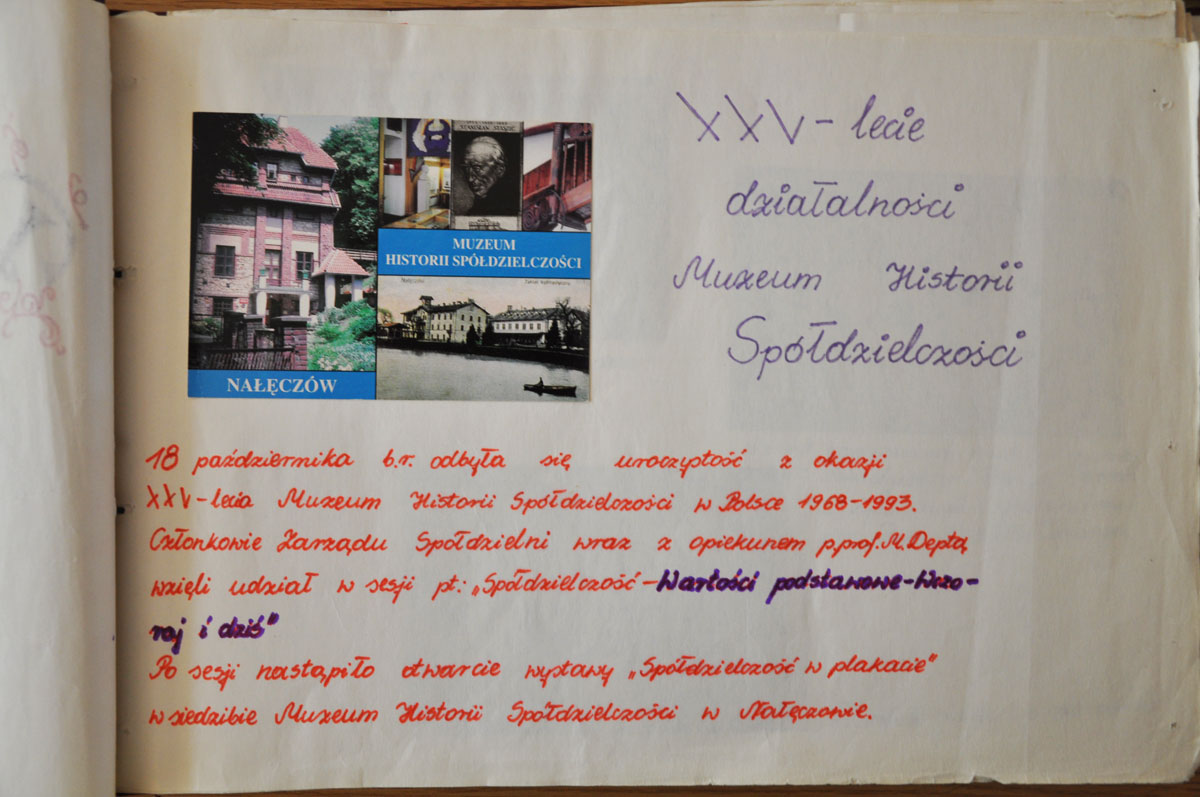 STANISŁAW STASZIC
MUZEUM
HISTORII SPÓŁDZIELCZOŚCI
Nałęczów
NAŁĘCZÓW
XXV-lecie
działalności
Muzeum Historii
Spółdzielczości
18 października b.r. odbyła się uroczystość z okazji
XXV-lecia Muzeum Historii Spółdzielczości w Polsce 1968-1993.
Członkowie Zarządu Spółdzielni wraz z opiekunem p.prof.M.Deptą
wzięli udział w sesji pt: „Spółdzielczość-Wartości podstawowe-Wczo-
raj i dziś"
Po sesji nastąpiło otwarcie wystawy „Spółdzielczość w plakacie"
w siedzibie Muzeum Historii Spółdzielczości w Nałęczowie.